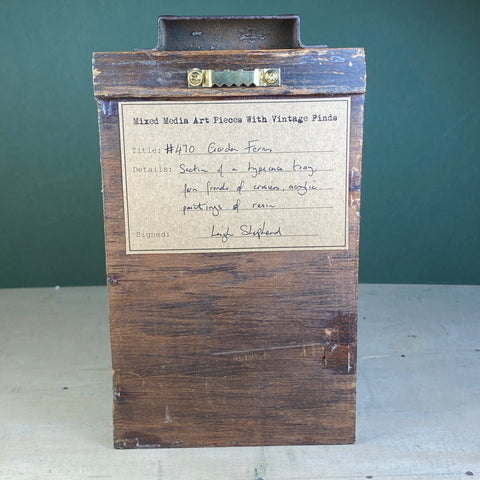 Mixed Media Art Pieces With Vintage Finds
Title: #470 Garden Ferns
Details: Section of a typecase tray,
fern fronds of croziers, acrylic
paintings of resin
Signed: Leigh Shepherd